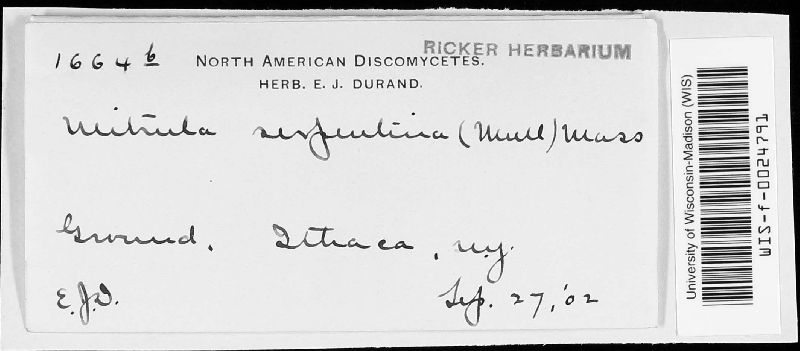 1664 b
RICKER HERBARIUM
NORTH AMERICAN DISCOMYCETES.
HERB. E. J. DURAND.
Mitrula serpentina (Mull) Mass
Ground. Ithaca, N.Y.
E.J.D. Sep. 27, '02
University of Wisconsin-Madison (WIS)
WIS-f-0024791